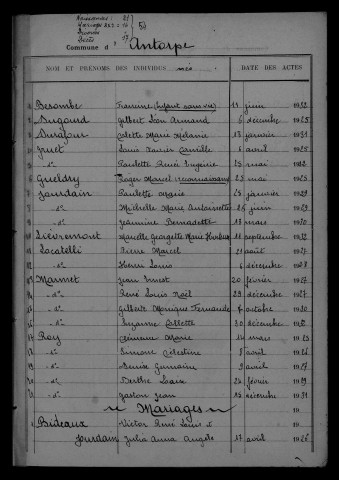 Naissances : 21
Mariages
Divorces
Décès
Commune d' Antorpe
NOM ET PRÉNOMS DES INDIVIDUS nés
DATE DES ACTES
Besombe (enfant sans vie) 11 juin 1932
Dugoud Gilbert Léon Armand 6 décembre 1925
Colette Marie Mélanie 13 janvier 1931
Louis Xavier Camille 6 avril 1925
d° Paulette Renée Eugénie 25 mai
Gueldry Roger Marcel (reconnaissance) 25 mai 1925
Jourdain Paulette Marie 25 janvier 1929
d° Michelle Marie Antoinette 26 juin 1929
d° Jeannine Bernadette 18 mars 1930
Lièvremont Marcelle Georgette Marie 11 septembre 1932
Locatelli Pierre Marcel 21 août 1927
d° Henri Louis 6 décembre 1928
Marmet Jean Ernest 20 février 1927
d° René Louis Noël 29 décembre 1927
d° Gilbert Monique Fernande 7 octobre 1930
d° Suzanne Collette 30 décembre
Roy Marie 14 mars
d° Simone Célestine 8 avril 1926
d° Denise Germaine 9 avril 1927
d° Berthe 22 février 1929
d° Gaston Jean 15 décembre 1931
Mariages 19
Bideaux Victor René Louis &
Jourdain Julia Anna Angèle 17 avril 1926